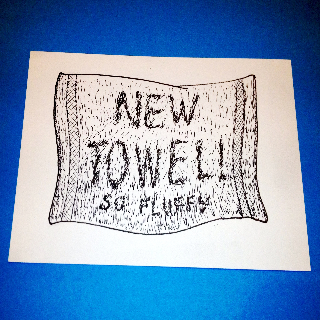 NEW
TOWELL
SO FLUFFY